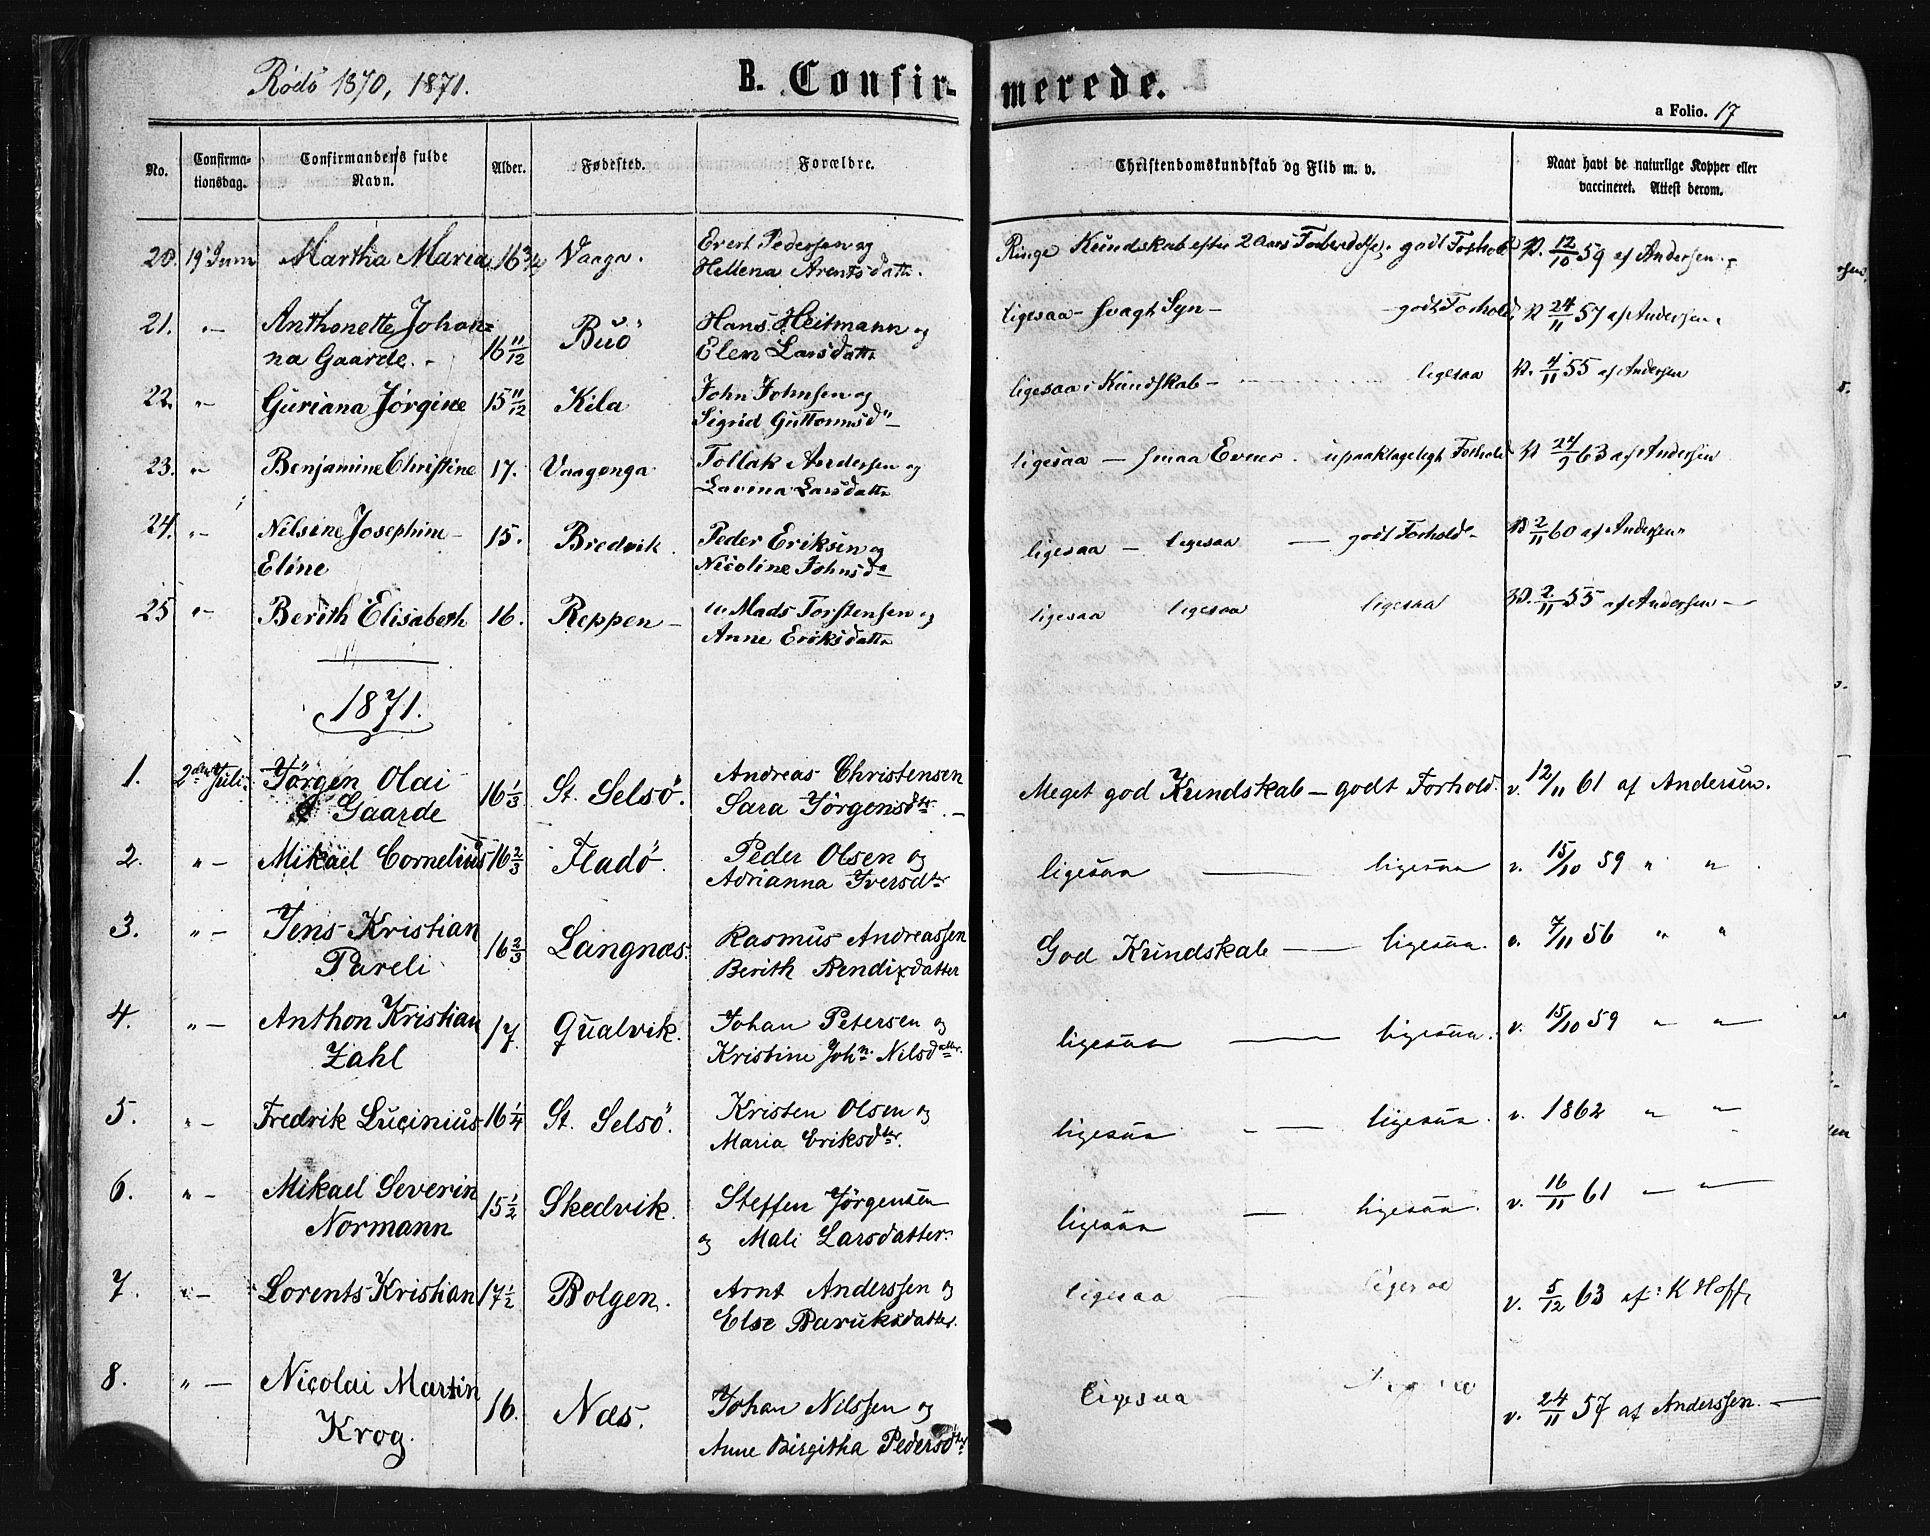 Rødø 1870, 1871.
B. Confir- merede.
a Folio. 17
No. Confirma-tionsdag. Confirmandens fulde Navn. Alder. Fødested. Forældre. Christendomskundskab og Flid m. v. Naar havt de naturlige Kopper eller vaccineret. Attest derom.
20. 19 Juni Martha Maria 16 3/4 Vaaga. Evert Pedersen og Ringe Kundskab efter 2 Aars Forberedelse, godt Forhold v. 12/10 59 af Andersen.
Hellena Arentsdattr.
21. "— Anthonette Johan= 16 11/12 Buö Hans Heitmann og ligesaa - svagt Syn — godt Forhold v. 24/11 57 af Andersen.
na Gaarde. - Elen Larsdattr
22. "— Guriana Jørgine 15 11/12 Kila John Johnsen og ligesaa i Kundskab — ligesaa v. 4/11 55 af Andersen
Sigrid Guttormsd"—
23. "— Benjamine Christine 17. Vaagønga Tollak Andersen og ligesaa — smaa Evner. upaaklageligt Forhold v. 24/9 63 af Andersen
Lavina Larsdattr
24. "— Nilsine Josephine— 15. Bredvik. Peder Eriksen og ligesaa — ligesaa — godt Forhold— v. 2/11 60 af Andersen"
Eline Nicoline Johnsda
25 "— Berith Elisabeth 16. Reppen— Mads Torstensen og ligesaa ligesaa ligesaa v. 2/11 55 af Andersen —
Anne Eriksdattr
1871.
1. 2den Juli. Jörgen Olai 16 1/3 St. Selsö. Andreas Christensen Meget god Kundskab — godt Forhold. v. 12/11 61 af Andersen.
Gaarde Sara Jörgensdtr. —
2. "— Mikael Cornelius 16 2/3 Fladö. Peder Olsen og ligesaa — ligesaa v. 15/10 59 " "
Adrianna Iversdtr
3. "— Jens Kristian 16 2/3 Langnæs. Rasmus Andreassen God Kundskab — ligesaa. v. 7/11 56 " "
Pareli Berith Bendixdatter
4. "— Anthon Kristian 17 Qualvik. Johan Petersen og ligesaa — ligesaa. v. 15/10 59 " "
Zahl Kristine John. Nilsdatter.
5. "— Fredrik Lucinius 16 1/4 St. Selsö. Kristen Olsen og ligesaa — ligesaa. v. 1862 " "
Maria Eriksdtr.
6. "— Mikael Severin 15 1/2 Skedvik. Steffen Jörgensen ligesaa — ligesaa. v. 16/11 61 — "
Normann og Mali Larsdatter.
7. "— Lorents Kristian 17 1/2 Bolgen. Arnt Anderssen og ligesaa — ligesaa v. 5/12 63 af: K Hoff,
Else Baruksdatter.
8. "— Nicolai Martin 16. Næs. Johan Nilssen og ligesaa v. 24/11 57 af Anderssen. —
Krog. Anne Birgitha Pedersdtr